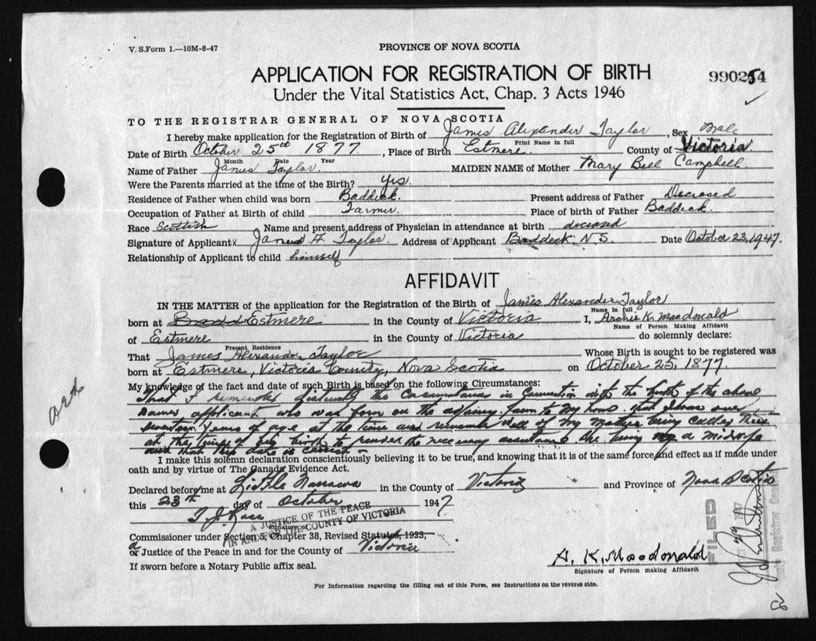 V. S. Form 1.—10M-8-47
PROVINCE OF NOVA SCOTIA
APPLICATION FOR REGISTRATION OF BIRTH
Under the Vital Statistics Act, Chap. 3 Acts 1946
990254
TO THE REGISTRAR GENERAL OF NOVA SCOTIA
I hereby make application for the Registration of Birth of James Alexander Taylor, Sex Male
Print Name in full
Date of Birth October 25th 1877, Place of Birth Estmere County of Victoria
Month Date Year
Name of Father James Taylor MAIDEN NAME of Mother Mary Bell Campbell
Were the Parents married at the time of the Birth? yes.
Residence of Father when child was born Baddeck Present address of Father Deceased
Occupation of Father at Birth of child Farmer Place of birth of Father Baddeck.
Race Scottish Name and present address of Physician in attendance at birth deceased
Signature of Applicant James A Taylor Address of Applicant Baddeck N.S. Date October 23, 1947.
Relationship of Applicant to child himself
AFFIDAVIT
IN THE MATTER of the application for the Registration of the Birth of James Alexander Taylor
Name in full
born at Estmere in the County of Victoria I, Archie K. Macdonald
Name of Person Making Affidavit
of Estmere in the County of Victoria do solemnly declare:
Present Residence
That James Alexander Taylor Whose Birth is sought to be registered was
born at Estmere, Victoria County, Nova Scotia on October 25, 1877.
My knowledge of the fact and date of such Birth is based on the following Circumstances:
That I remember distinctly the Circumstances in Connection with the birth of the above
named applicant who was born on the adjoining farm to my home that I was over
seventeen years of age at the time and remember well of my Mother being called there
at the time of his birth to render the necessary assistance she being a midwife
and that this date is correct.
I make this solemn declaration conscientiously believing it to be true, and knowing that it is of the same force and effect as if made under
oath and by virtue of The Canada Evidence Act.
Declared before me at Little Narrows in the County of Victoria and Province of Nova Scotia
this 23rd day of October 1947
T. J. Ross
Signature of
A JUSTICE OF THE PEACE
IN AND FOR THE COUNTY OF VICTORIA
Commissioner under Section 5, Chapter 38, Revised Statutes, 1923,
a or Justice of the Peace in and for the County of Victoria
If sworn before a Notary Public affix seal.
A. K. Macdonald
Signature of Person making Affidavit
FILED
For Information regarding the filling out of this Form, see Instructions on the reverse side.